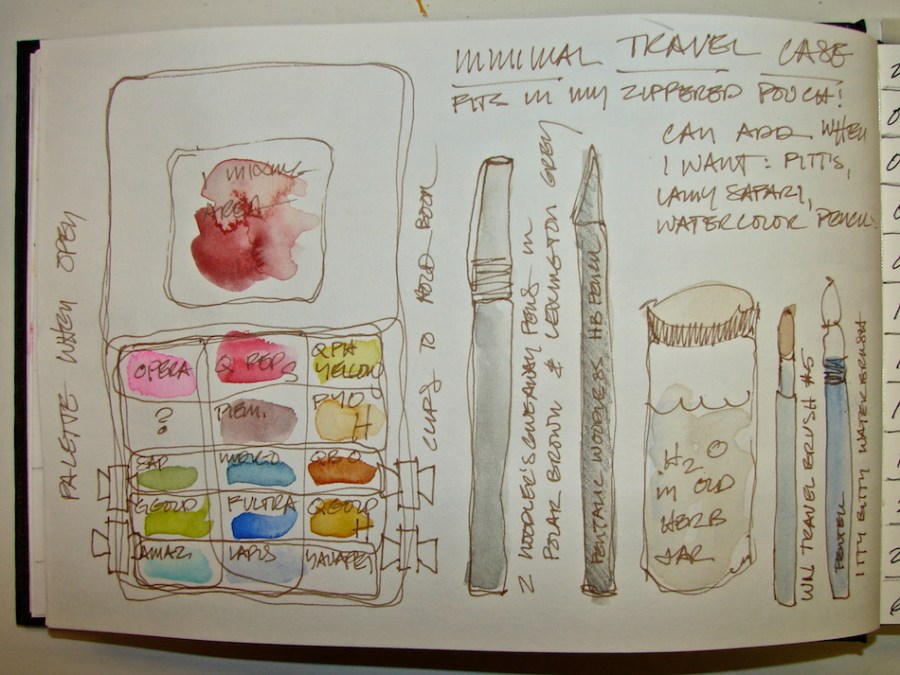 MINIMAL TRAVEL CASE
FITS IN MY ZIPPERED POUCH!
CAN ADD WHEN
I WANT: PITTS,
LAMY SAFARI,
WATERCOLOR PENCIL
PALETTE WHEN OPEN
MIXING
AREA
CLIPS TO HOLD BOOK
OPERA
Q RED
QPH
YELLOW
?
PIEM.
PYO
H
SAP
INDIGO
QBO
GGOLD
FULTRA
QGOLD
H
AMAZ
LAPIS
YAVAPEI
2 NOODLER'S GIVEAWAY PENS IN
POLAR BROWN & LEXINGTON GREY
PENTALIC WOODLESS HB PENCIL
H2O
IN OLD
HERB
JAR
WN TRAVEL BRUSH #5
PENTEL
ITTY BITTY WATER BRUSH